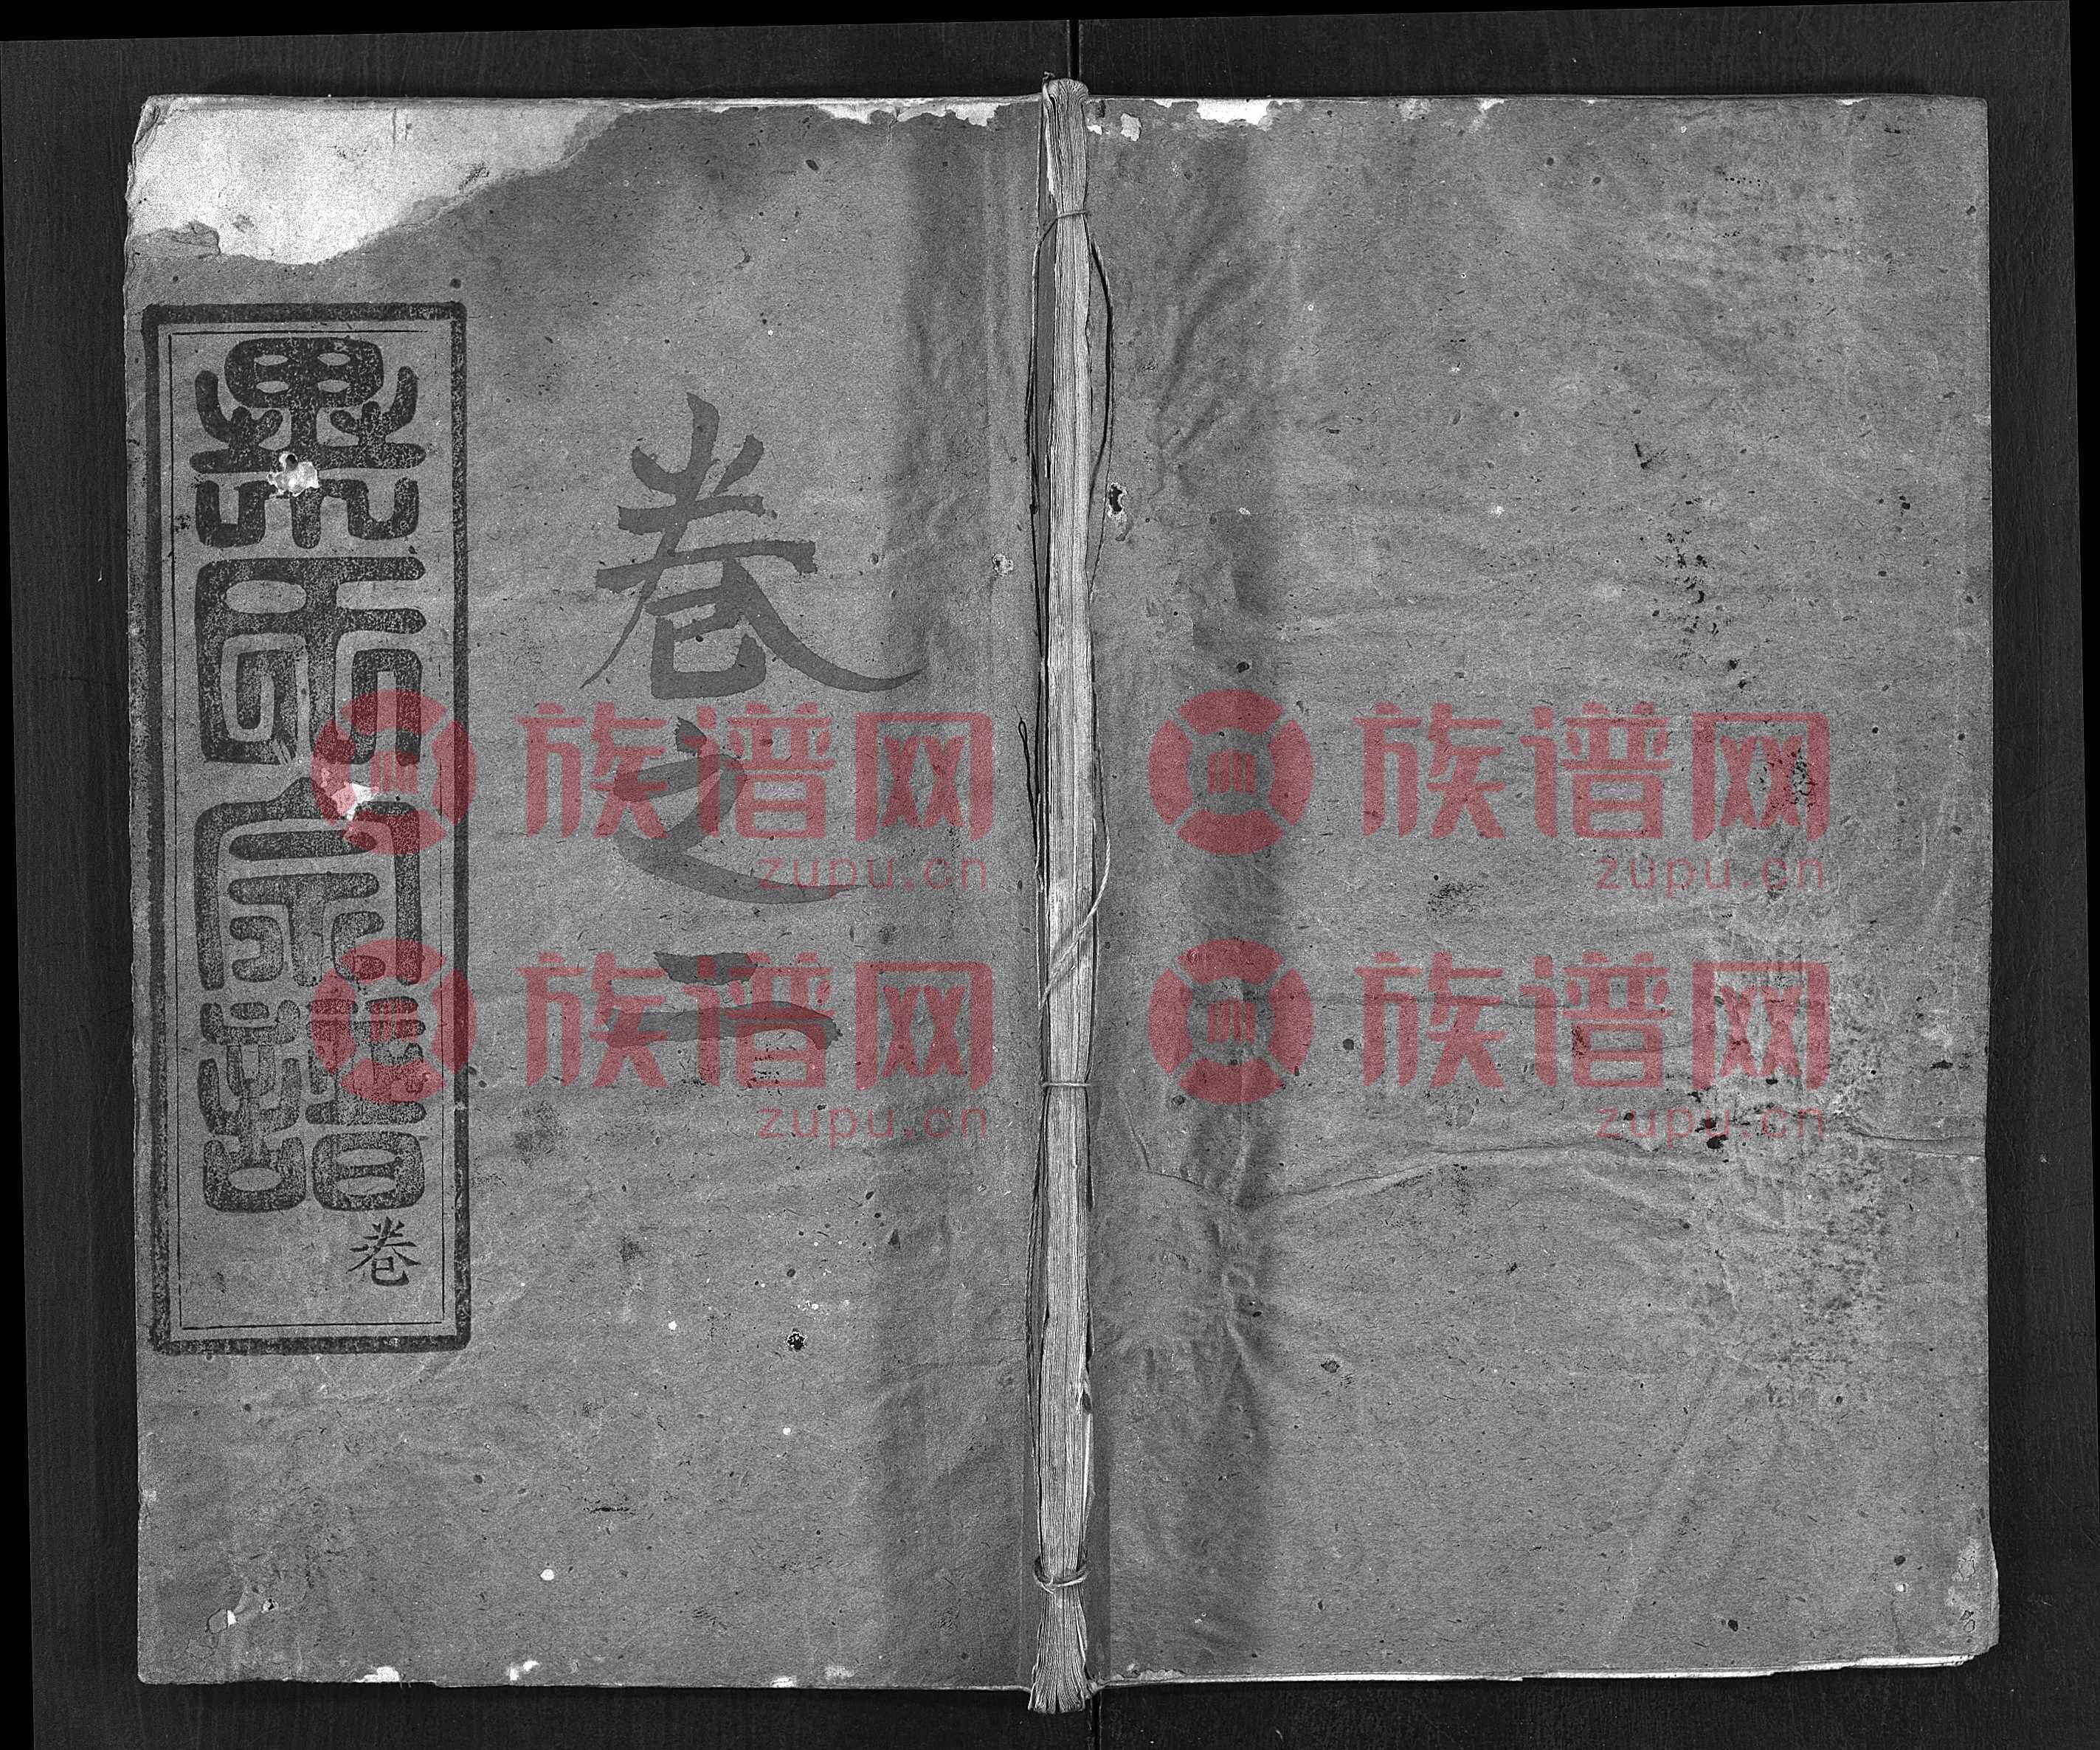 氏宗譜
卷
卷之二
族谱网
zupu.cn
族谱网
zupu.cn
族谱网
zupu.cn
族谱网
zupu.cn